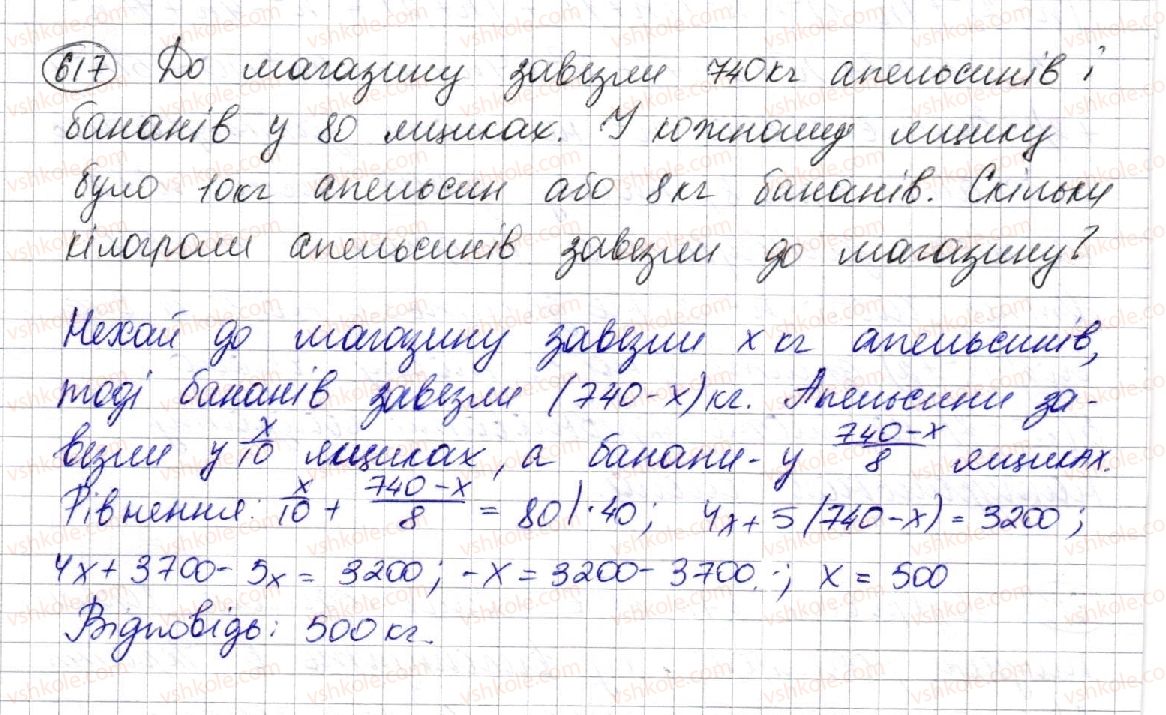 617 До магазину завезли 740кг апельсинів і
бананів у 80 ящиках. У кожному ящику
було 10кг апельсин або 8кг бананів. Скільки
кілограми апельсинів завезли до магазину?
Нехай до магазину завезли x кг апельсинів,
тоді бананів завезли (740-x)кг. Апельсини за-
везли у x/10 ящиках, а банани - у (740-x)/8 ящиках.
Рівнення: x/10 + (740-x)/8 = 80|·40; 4x+5(740-x)=3200;
4x+3700-5x=3200; -x=3200-3700; x=500
Відповідь: 500кг.